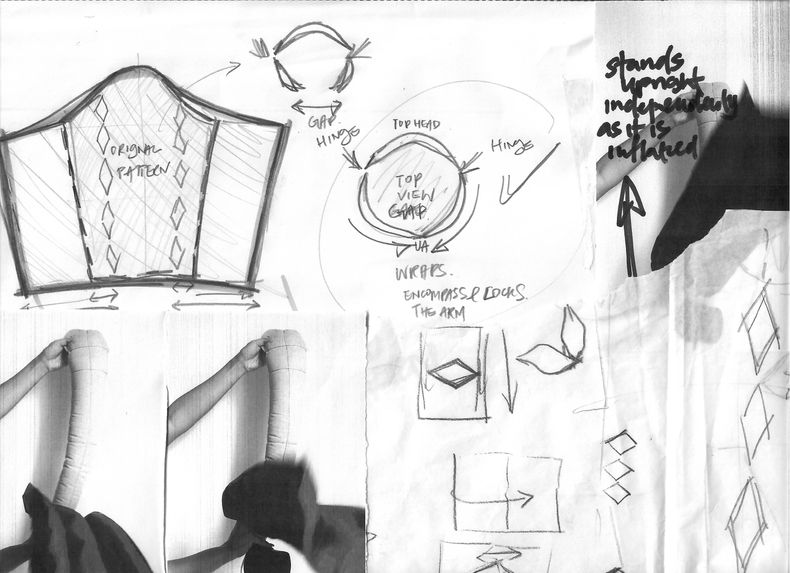 ORIGNAL
PATTERN
GAP.
HINGE
TOP HEAD
HINGE
TOP
VIEW
GAP.
UA
WRAPS.
ENCOMPASS & LOCKS.
THE ARM
stands
upright
independently
as it is
inflated